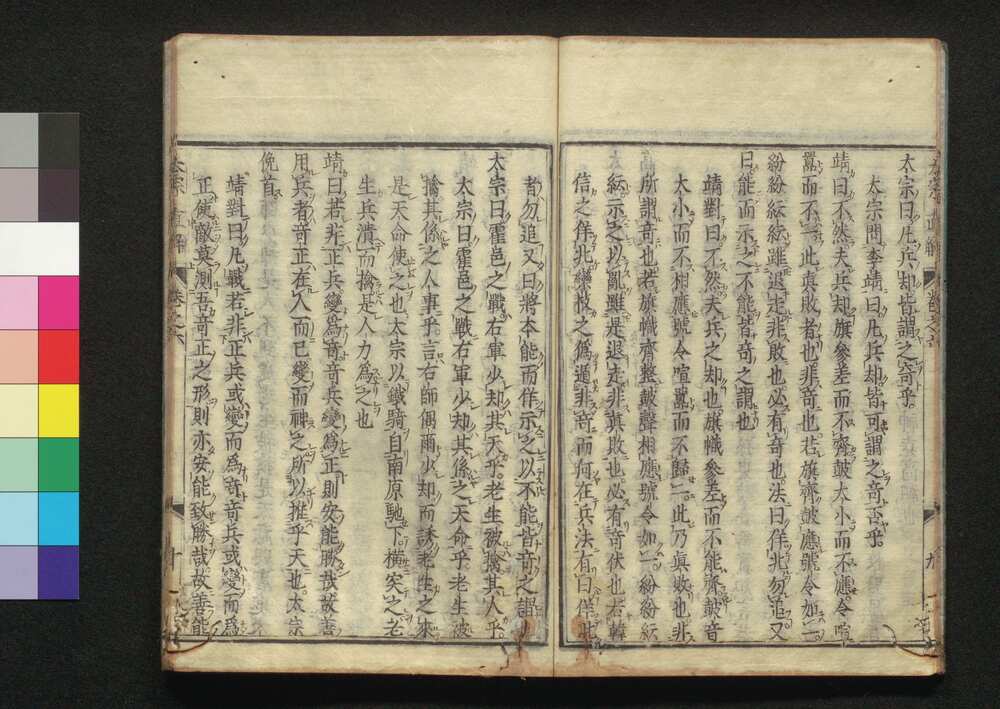 太宗曰凡兵却皆謂之奇乎
太宗問李靖曰凡兵却皆可謂之奇否乎
靖曰不然夫兵却旗參差而不齊鼓大小而不應令喧
囂而不一此真敗者也非奇也若旗齊鼓應號令如一
紛紛紜紜雖退走非敗也必有奇也法曰佯北勿追又
曰能而示之不能皆奇之謂也
靖對曰不然夫兵之却也旗幟參差而不能齊鼓音
大小而不相應號令喧囂而不歸一此乃真敗也非
所謂奇也若旗幟齊整鼓聲相應號令如一紛紛紜
紜示之以亂雖是退走非真敗也必有奇伏也若韓
信之佯北欒枝之爲遁非奇而何在兵法有曰佯北
者勿追又曰將本能而佯示之以不能皆奇之謂
太宗曰霍邑之戰右軍少却其天乎老生被擒其人乎
太宗曰霍邑之戰右軍少却其係之天命乎老生被
擒其係之人事乎言右師偶爾少却而誘老生之來
是天命使之也太宗以鐵騎自南原馳下橫突之老
生兵潰而擒是人力爲之也
靖曰若非正兵變爲奇奇兵變爲正則安能勝哉故善
用兵者奇正在人而已變而神之所以推乎天也太宗
俛首
靖對曰凡戰若非正兵或變而爲奇奇兵或變而爲
正使敵莫測吾奇正之形則亦安能致勝哉故善能